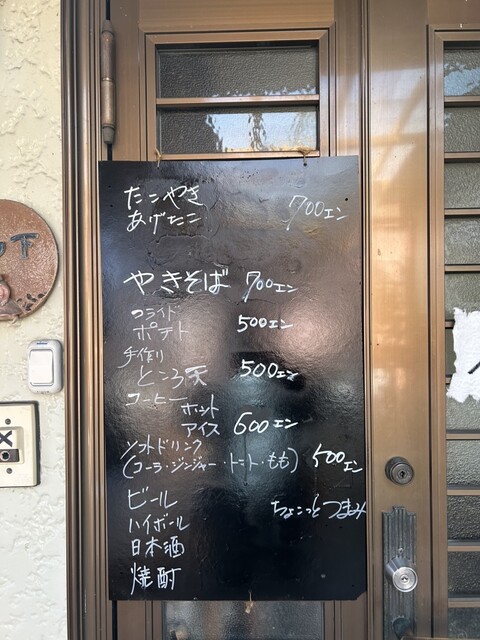 たこやき
あげたこ 700エン
やきそば 700エン
フライド
ポテト 500エン
手作り
ところ天 500エン
コーヒー ホット
アイス 600エン
ソフトドリンク
(コーラ・ジンジャー・トマト・もも) 500エン
ビール ちょこっとつまみ
ハイボール
日本酒
焼酎